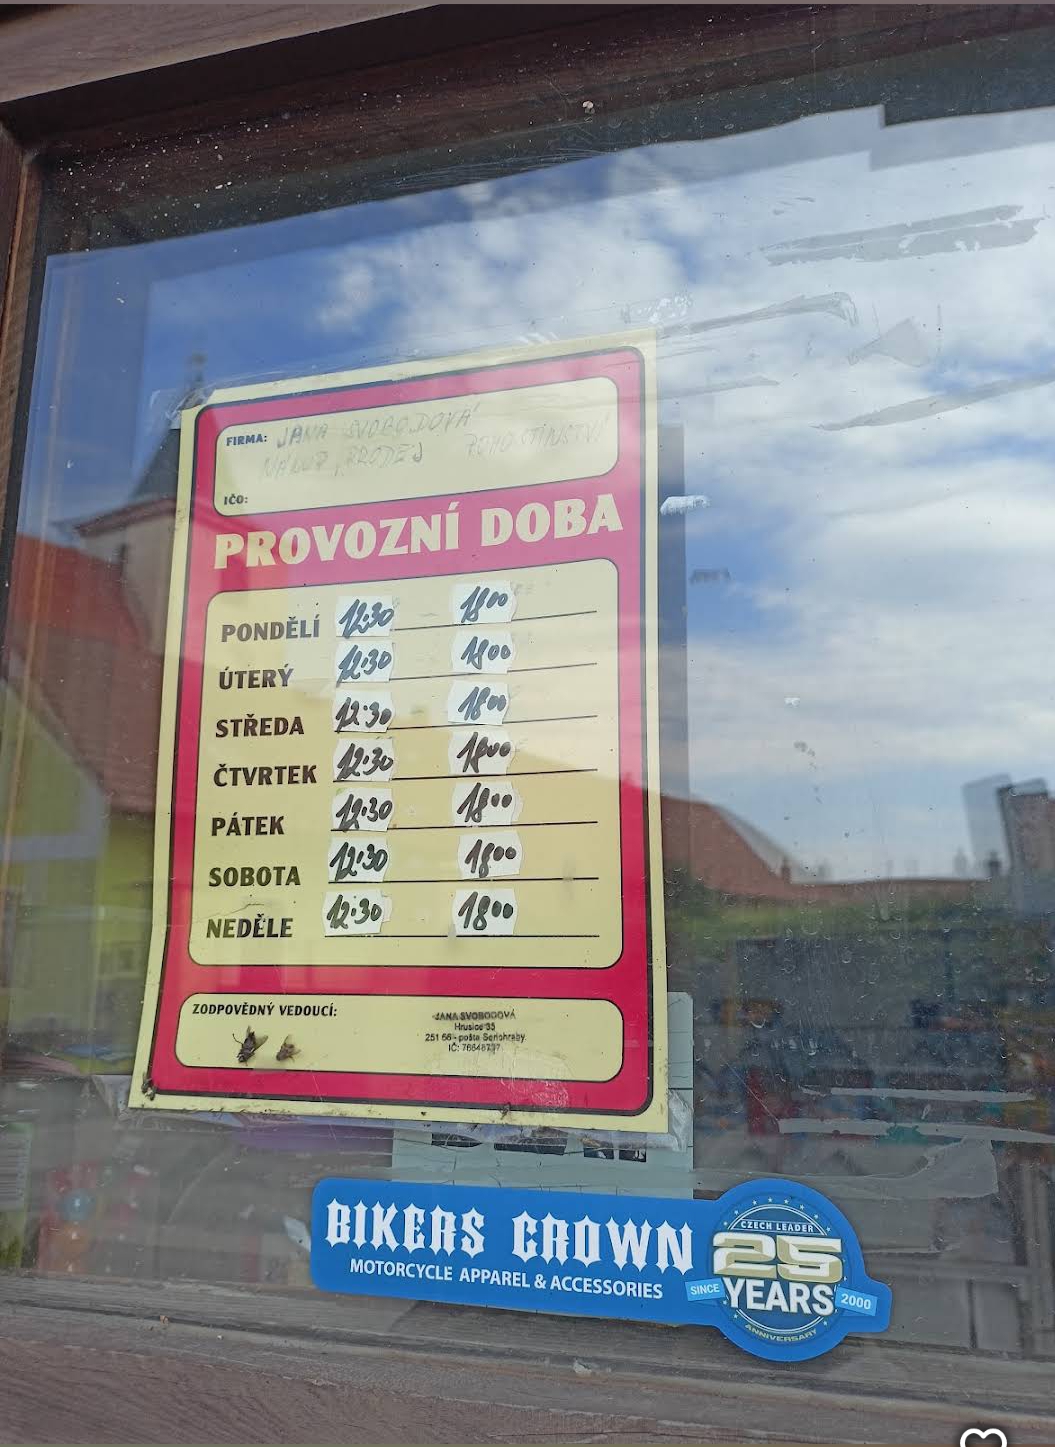 FIRMA: JANA SVOBODOVÁ
NÁKUP, PRODEJ POHOSTINSTVÍ
IČO:
PROVOZNÍ DOBA
PONDĚLÍ 12:30 18 00
ÚTERÝ 12:30 18 00
STŘEDA 12:30 18 00
ČTVRTEK 12:30 18 00
PÁTEK 12:30 18 00
SOBOTA 12:30 18 00
NEDĚLE 12:30 18 00
ZODPOVĚDNÝ VEDOUCÍ:
JANA SVOBODOVÁ
Hrusice 35
251 66 - pošta Senohraby
IČ:
BIKERS CROWN
MOTORCYCLE APPAREL & ACCESSORIES
CZECH LEADER
25
SINCE YEARS 2000
ANNIVERSARY